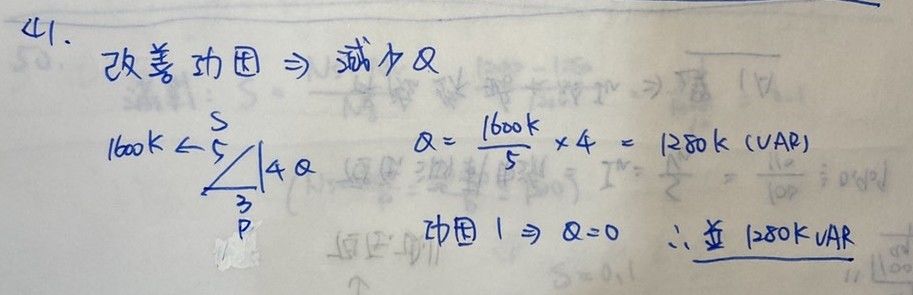 41.
改善功因 ⇒ 減少Q
S
1600K ← 5
4 Q
3
P
Q = 1600K/5 × 4 = 1280K (VAR)
功因 1 ⇒ Q=0 ∴ 並 1280K VAR